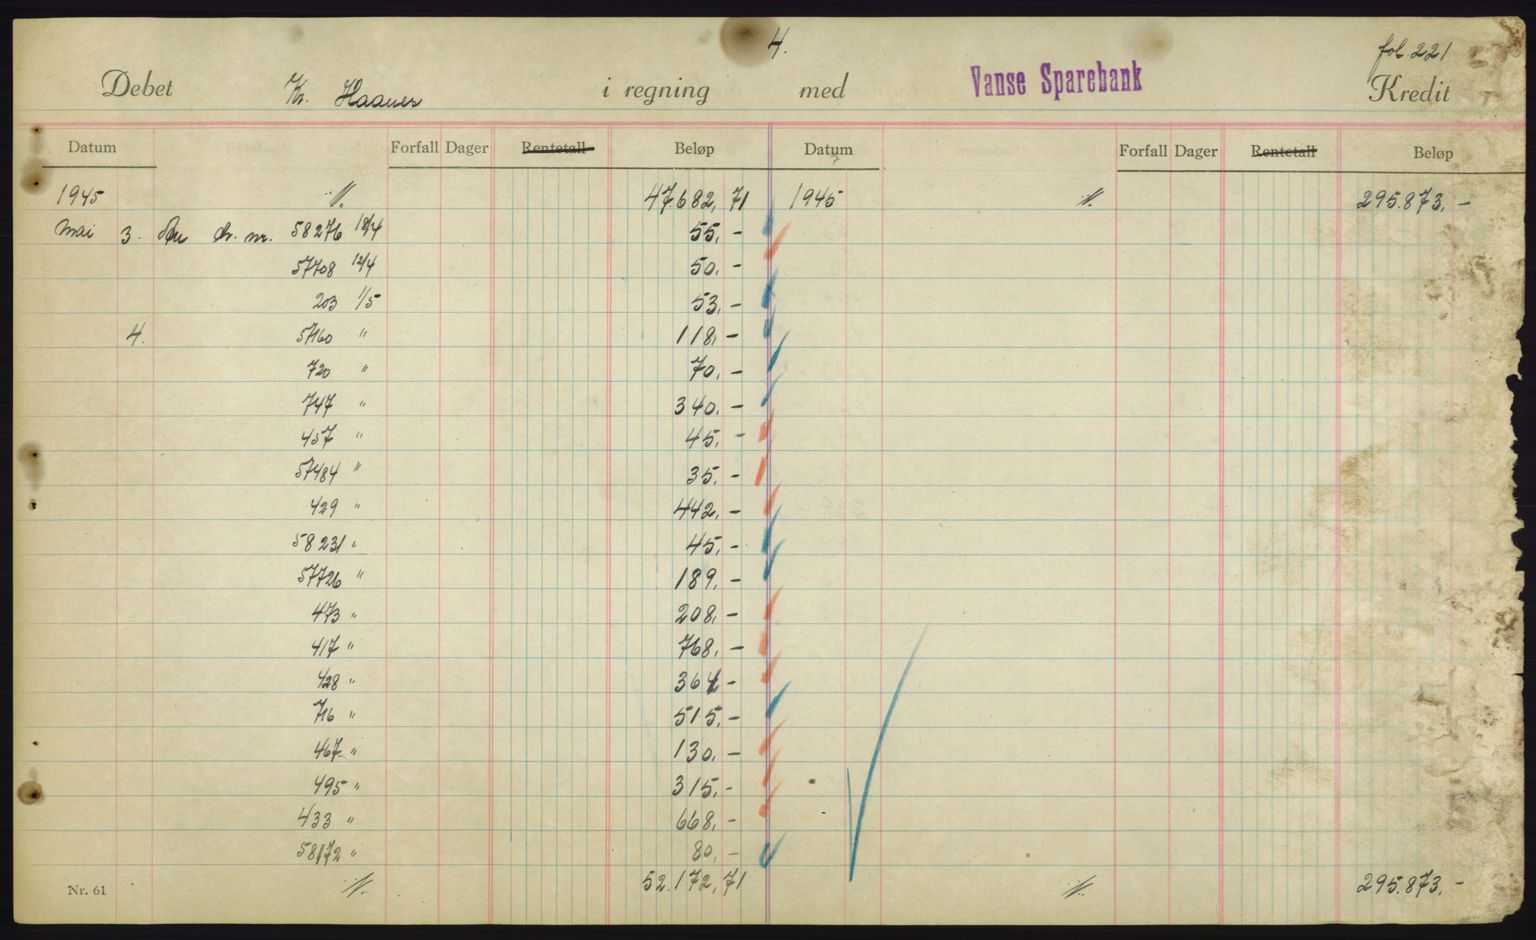 4.
fol. 221
Debet Kr. Haanes i regning med Vanse Sparebank Kredit
Datum Forfall Dager Rentetall Beløp Datum Forfall Dager Rentetall Beløp
1945 ·//. 47.682,71 1945 ·//. 295.873,-
Mai 3. chr. nr. 58276 18/4 55,-
57708 12/4 50,-
203 1/5 53,-
4. 57160 " 118,-
720 " 70,-
747 " 340,-
457 " 45,-
57484 " 35,-
429 " 442,-
58231 " 45,-
57726 " 189,-
473 " 208,-
417 " 768,-
428 " 364,-
716 " 515,-
467 " 130,-
495 " 315,-
433 " 668,-
58172 " 80,-
Nr. 61 ·//. 52.172,71 ·//. 295.873,-